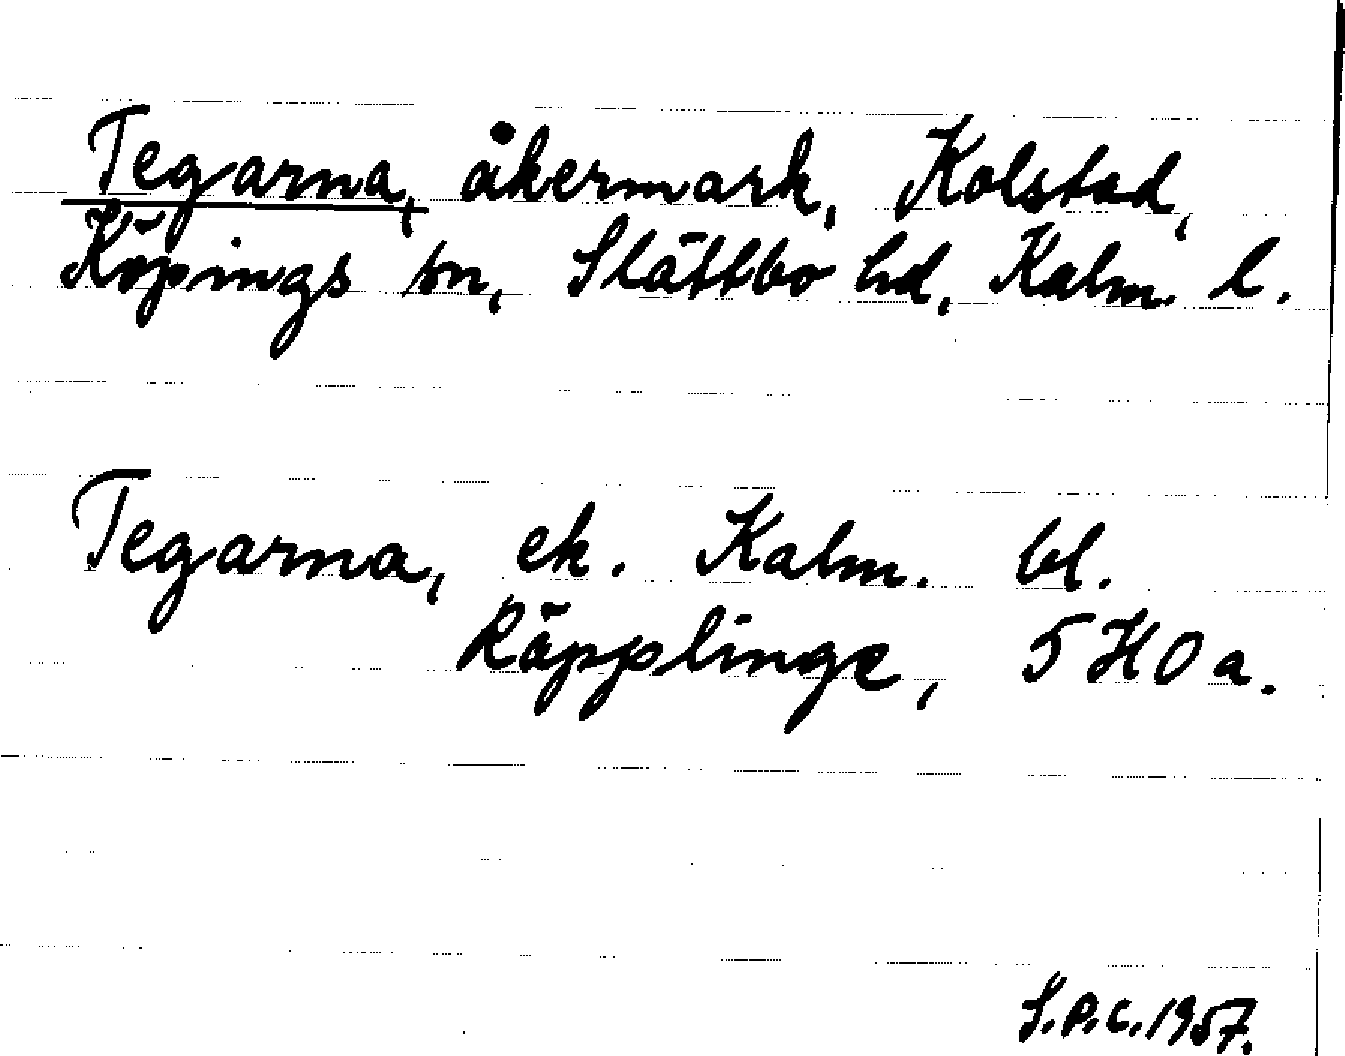 Tegarna, åkermark, Kolstad,
Köpings sn, Slättbo hd, Kalm. l.
Tegarna, ek. Kalm. bl.
Räpplinge, 5 H O a.
S.P.C. 1957.